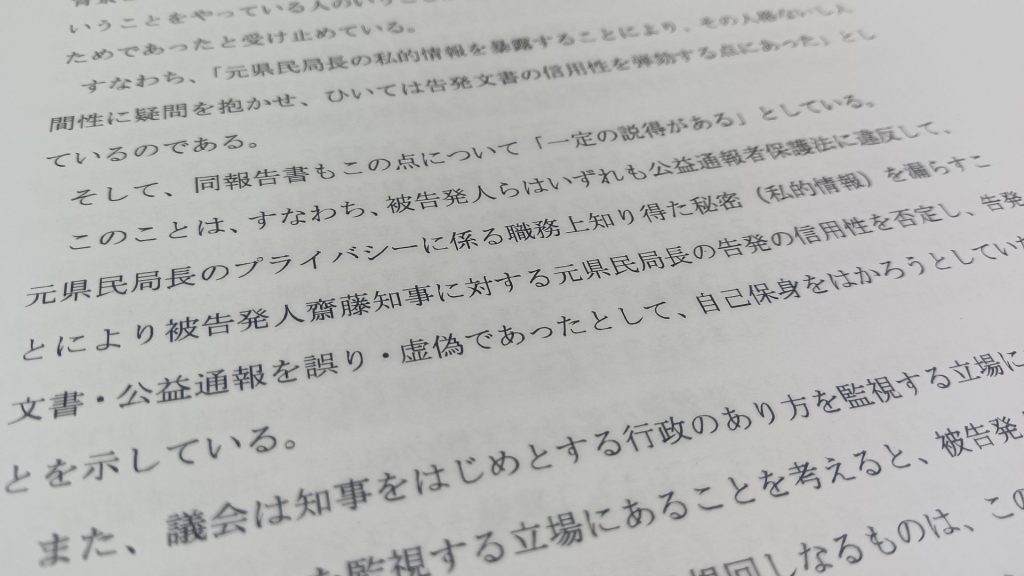 いうことをやっている人のいうこと
ためであったと受け止めている。
すなわち、「元県民局長の私的情報を暴露することにより、その人格ないし人
間性に疑問を抱かせ、ひいては告発文書の信用性を弾劾する点にあった」とし
ているのである。
そして、同報告書もこの点について「一定の説得がある」としている。
このことは、すなわち、被告発人らはいずれも公益通報者保護法に違反して、
元県民局長のプライバシーに係る職務上知り得た秘密（私的情報）を漏らすこ
とにより被告発人齋藤知事に対する元県民局長の告発の信用性を否定し、告発
文書・公益通報を誤り・虚偽であったとして、自己保身をはかろうとしていた
とを示している。
また、議会は知事をはじめとする行政のあり方を監視する立場に
を監視する立場にあることを考えると、被告発
しなるものは、この